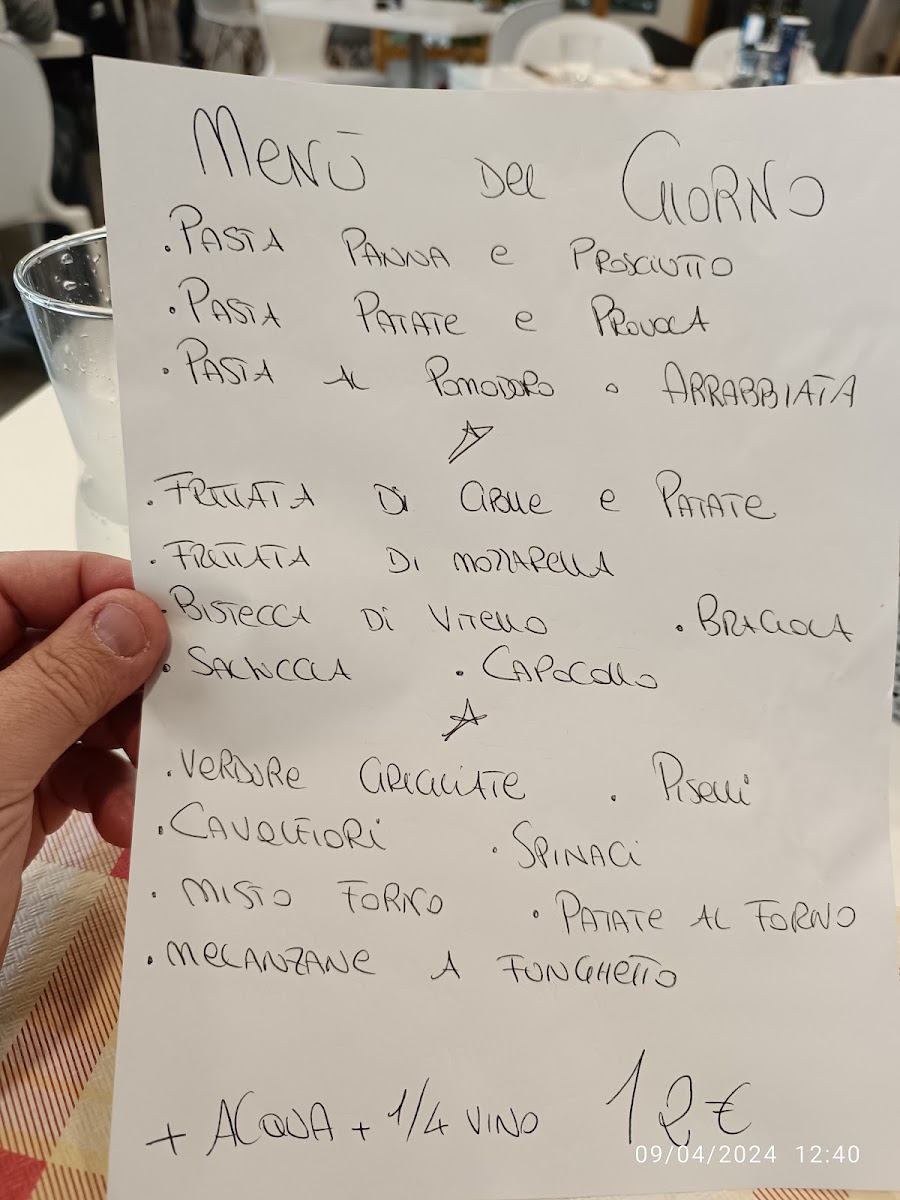 MENÙ DEL GIORNO
• PASTA PANNA e PROSCIUTTO
• PASTA PATATE e PROVOLA
• PASTA AL POMODORO o ARRABBIATA
• FRITTATA DI CIPOLLE e PATATE
• FRITTATA DI MOZZARELLA
• BISTECCA DI VITELLO • BRACIOLA
• SALSICCIA • CAPOCOLLO
• VERDURE GRIGLIATE • PISELLI
• CAVOLFIORI • SPINACI
• MISTO FORNO • PATATE AL FORNO
• MELANZANE A FUNGHETTO
+ ACQUA + 1/4 VINO 12€
09/04/2024 12:40